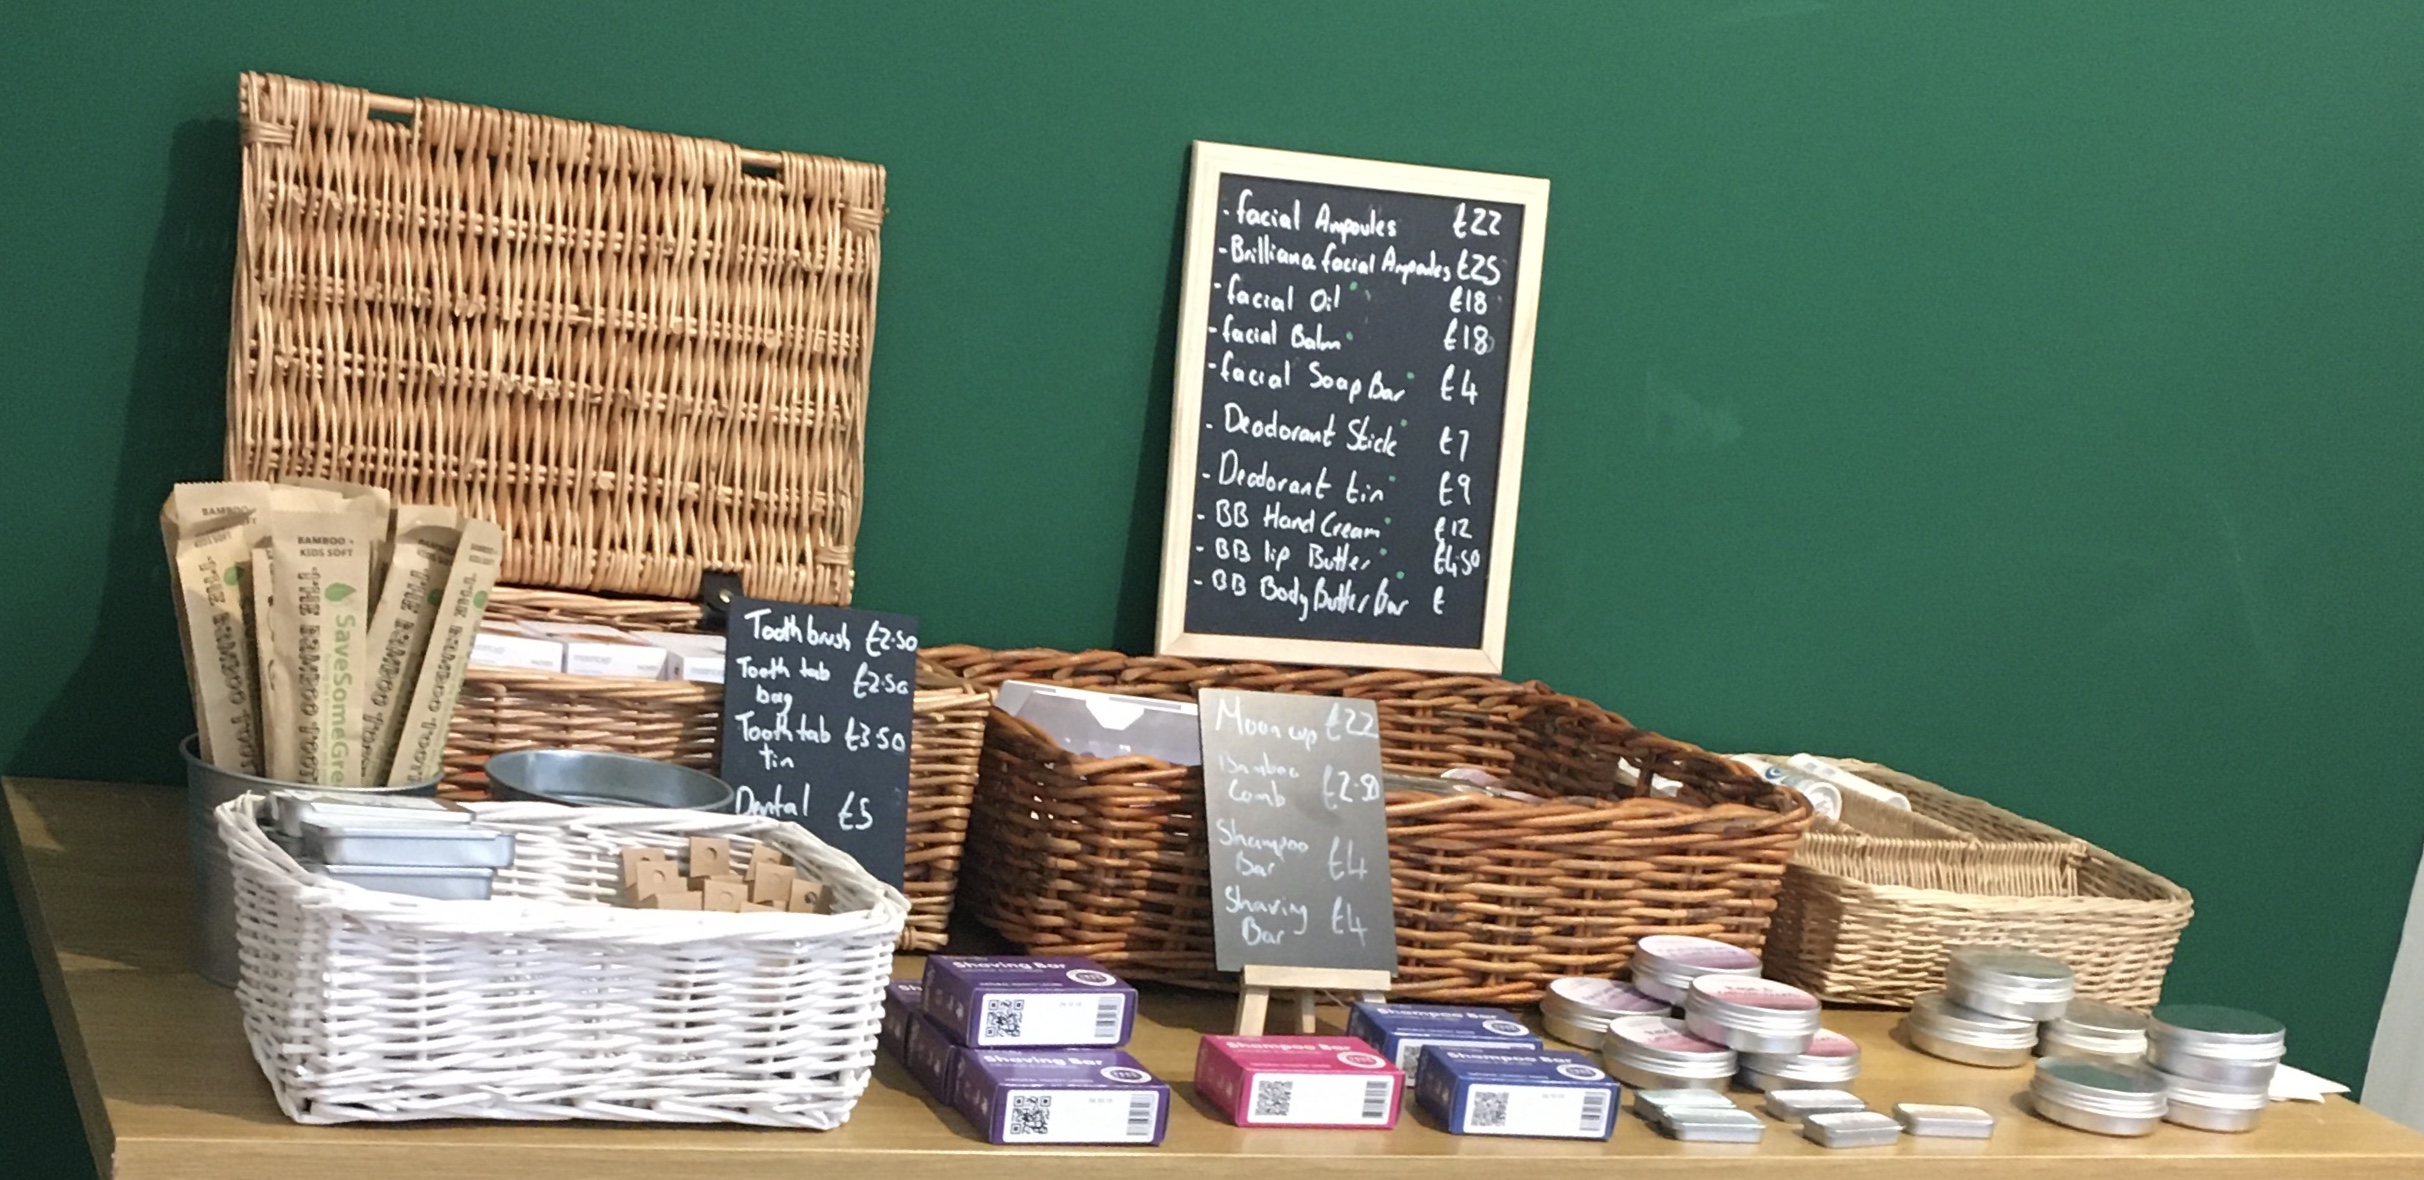 - facial Ampoules £22
- Brilliana facial Ampoules £25
- facial Oil £18
- facial Balm £18
- facial Soap Bar £4
- Deodorant Stick £7
- Deodorant tin £9
- BB Hand Cream £12
- BB lip Butter £4.50
- BB Body Butter Bar £
BAMBOO
BAMBOO
KIDS SOFT
THE BAMBOO TOOT
SaveSomeGre
Toothbrush £2.50
Tooth tab £2.50
bag
Tooth tab £3.50
tin
Dental £5
Moon cup £22
Bamboo
Comb £2.50
Shampoo
Bar £4
Shaving
Bar £4
Shaving Bar
Shaving Bar
Shampoo Bar
Shampoo Bar
Shampoo Bar